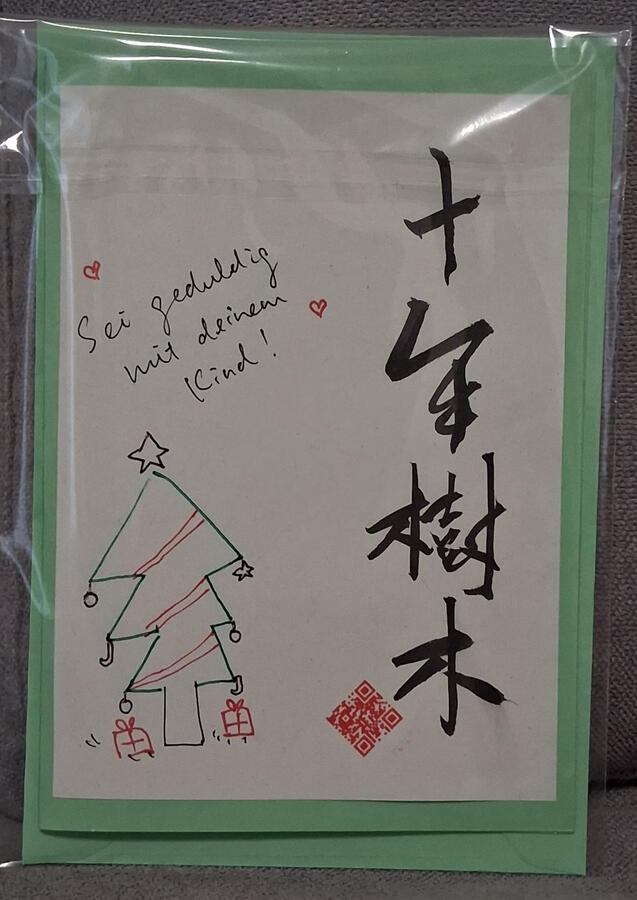 Sei geduldig
mit deinem
Kind!
十年樹木